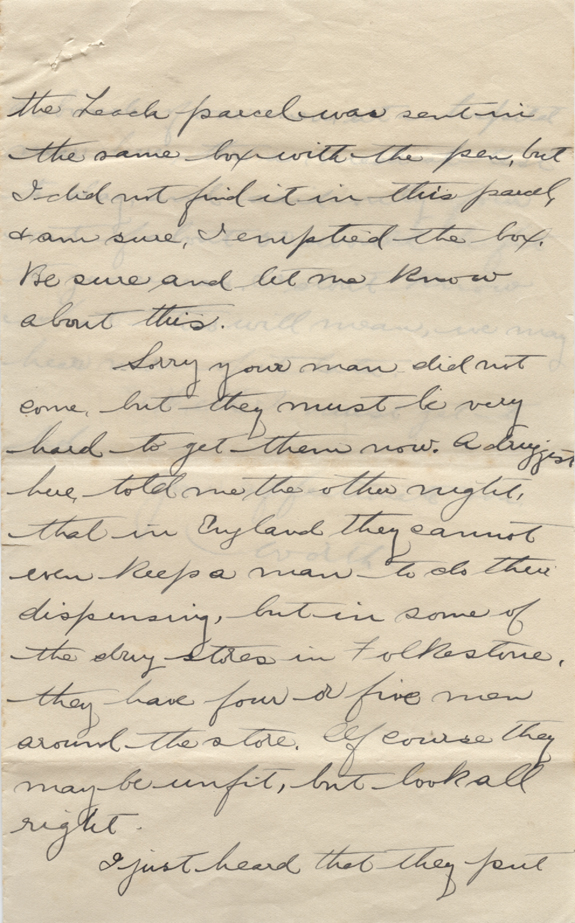 the Leach parcel was sent in
the same box with the pen, but
I did not find it in this parcel,
& am sure, I emptied the box.
Be sure and let me know
about this.
Sorry your man did not
come, but they must be very
hard to get them now. A druggist
here, told me the other night,
that in England they cannot
even keep a man to do their
dispensing, but in some of
the drug stores in Folkestone,
they have four or five men
around the store. Of course they
may be unfit, but look all
right.
I just heard that they put